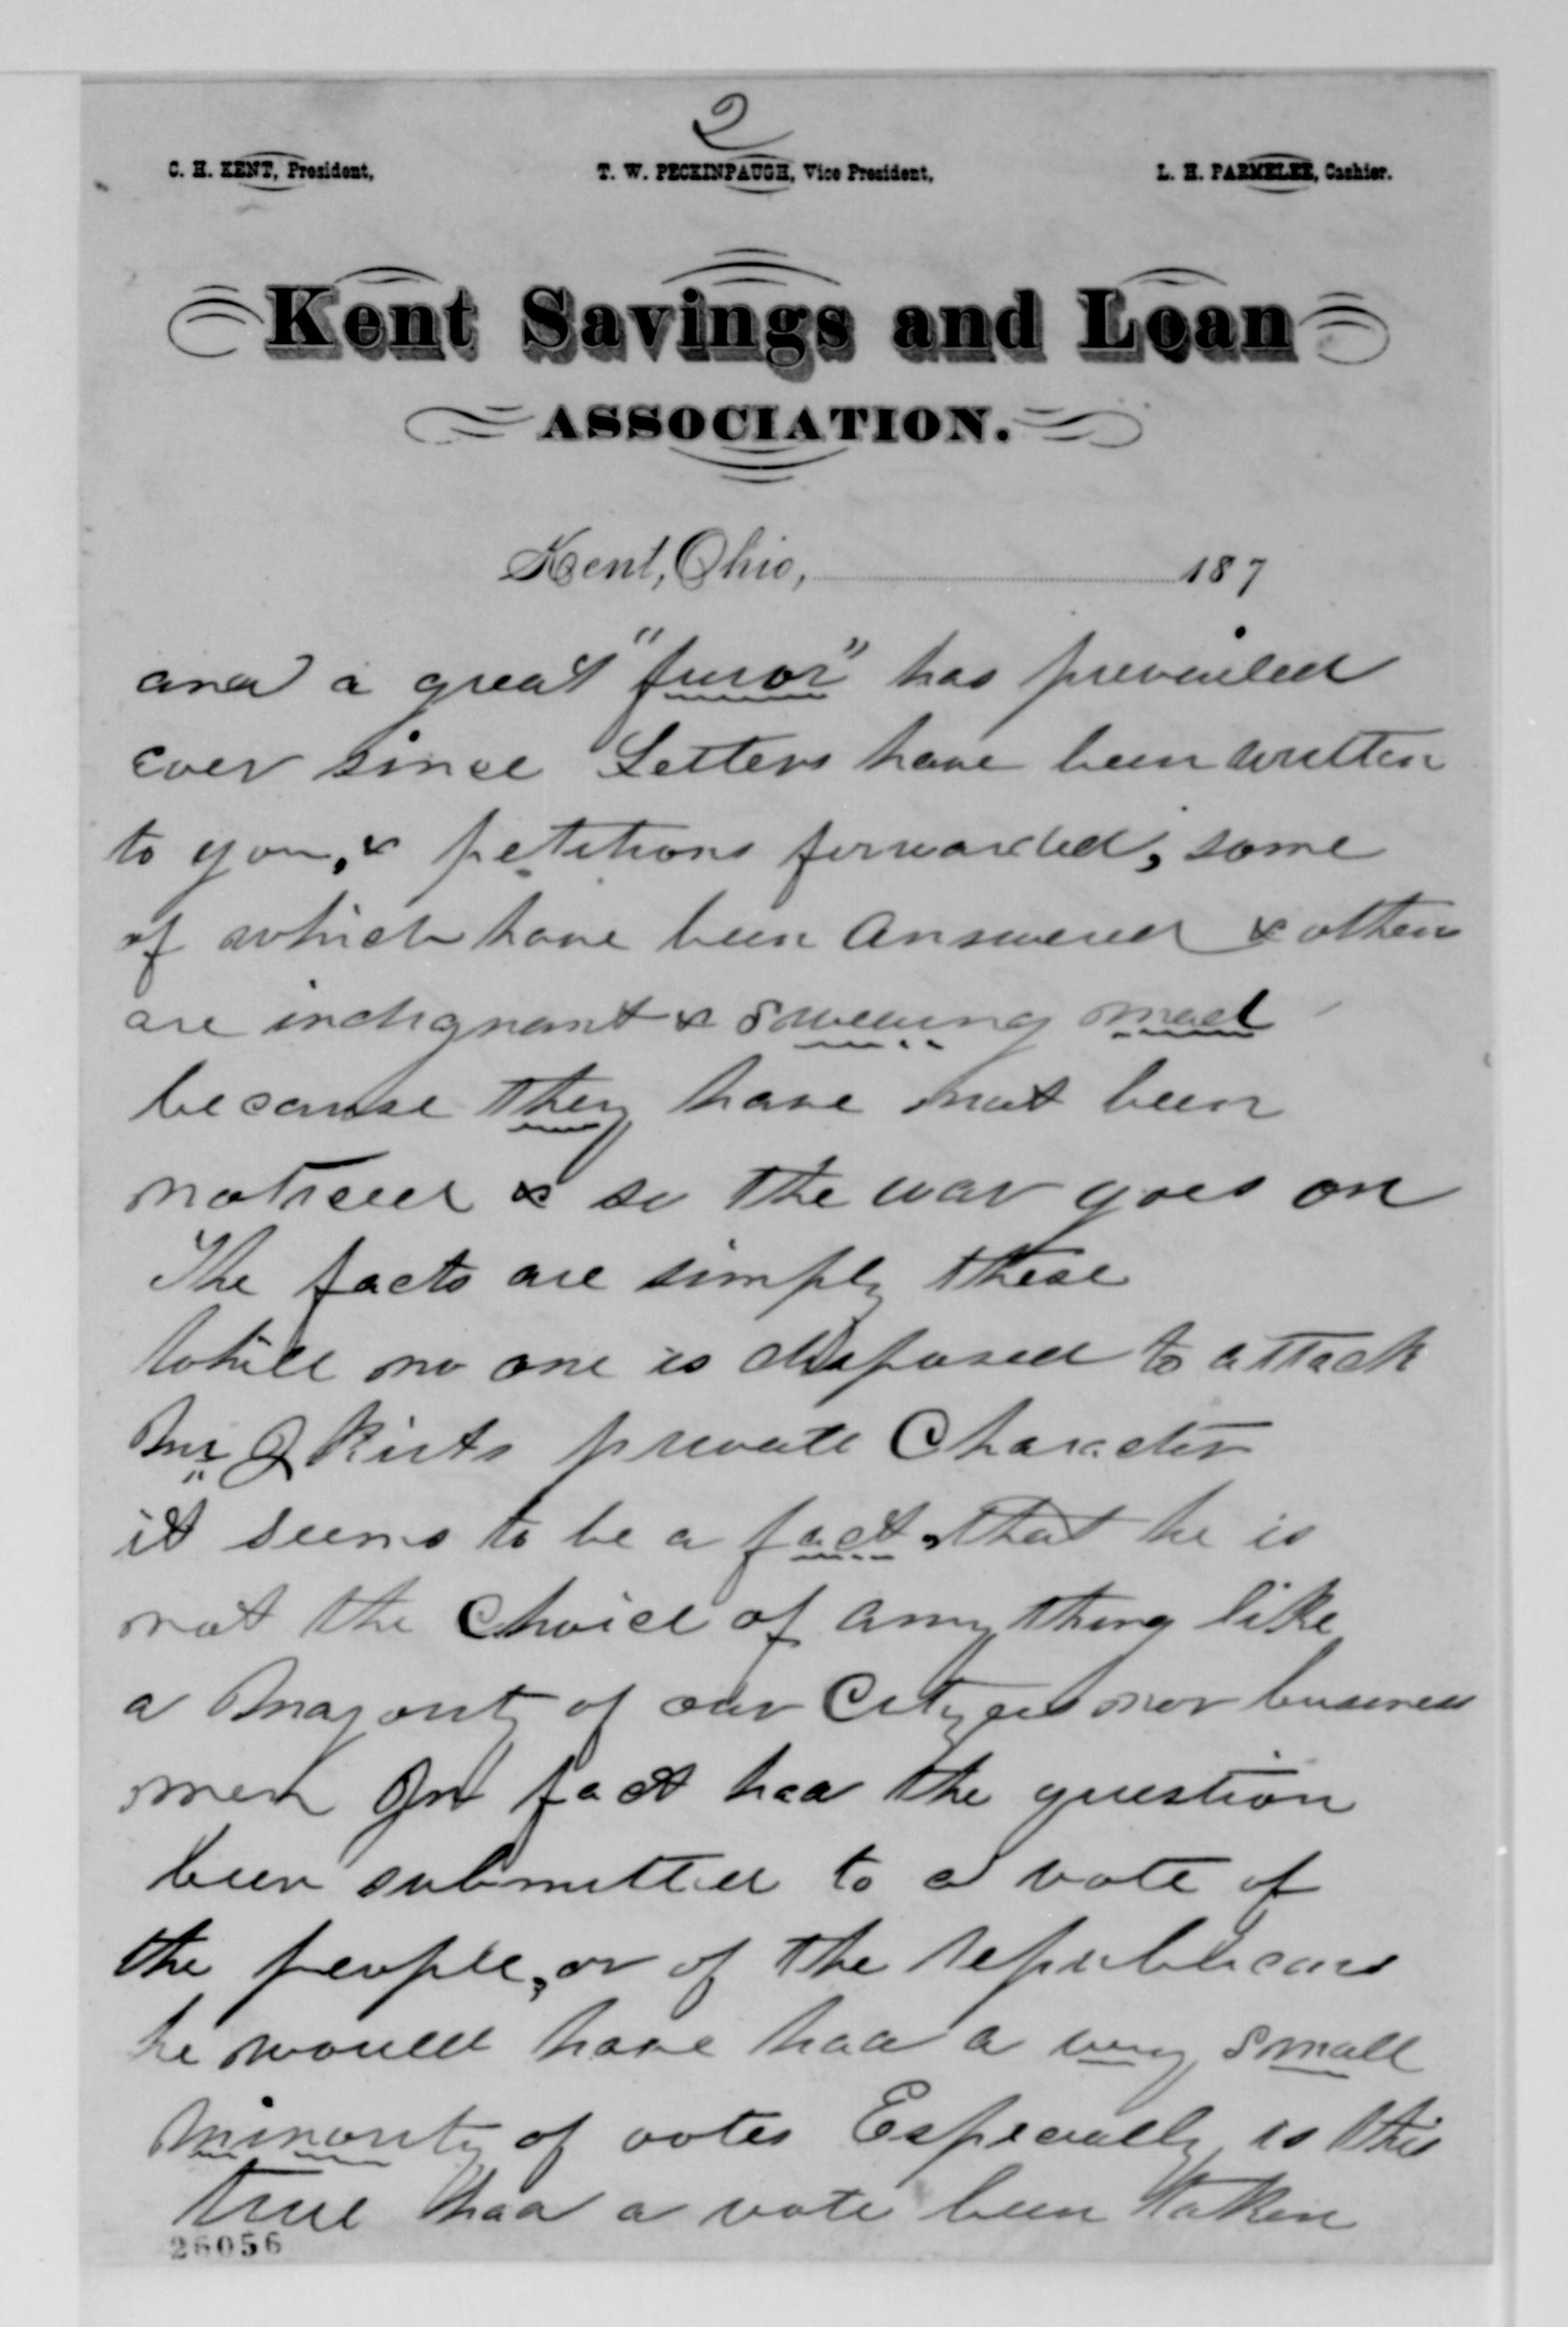 2
C. H. KENT, President,
T. W. PECKINPAUGH, Vice President,
L. H. PARMELEE, Cashier.
Kent Savings and Loan
ASSOCIATION.
Kent, Ohio, 187
and a great "furor" has prevailed
ever since Letters have been written
to you, & petitions forwarded, some
of which have been answered & others
are indignant & swearing mad
because they have not been
noticed & so the war goes on
The facts are simply these
While no one is disposed to attack
Mr private Character
it seems to be a fact, that he is
not the Choice of any thing like
a Majority of our Citizens nor business
men In fact had the question
been submitted to a vote of
the people, or of the republicans
he would have had a very small
minority of votes Especially is this
true had a vote been taken
26056